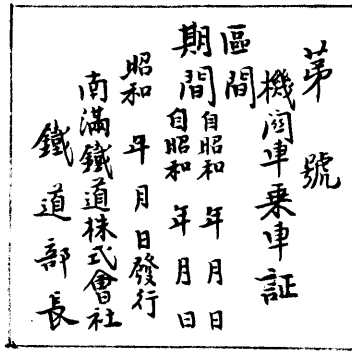 第 號
機関車乗車証
區間
期間 自昭和 年 月 日
自昭和 年 月 日
昭和 年 月 日發行
南滿鐵道株式會社
鐵道部長